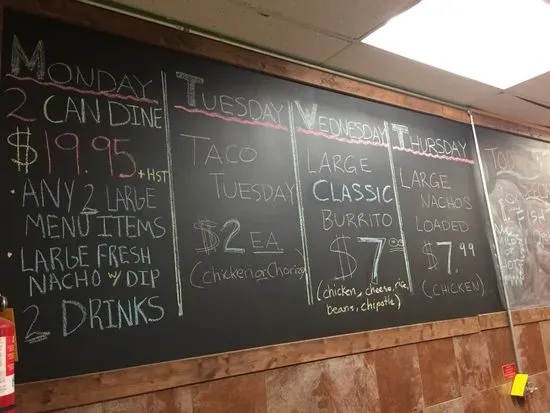 MONDAY
2 CAN DINE
$19.95 + HST
• ANY 2 LARGE
MENU ITEMS
• LARGE FRESH
NACHO w/ DIP
• 2 DRINKS
TUESDAY
TACO
TUESDAY
$2 EA.
(chicken or Chorizo)
WEDNESDAY
LARGE
CLASSIC
BURRITO
$7.00
(chicken, cheese, rice,
beans, chipotle)
THURSDAY
LARGE
NACHOS
LOADED
$7.99
(CHICKEN)